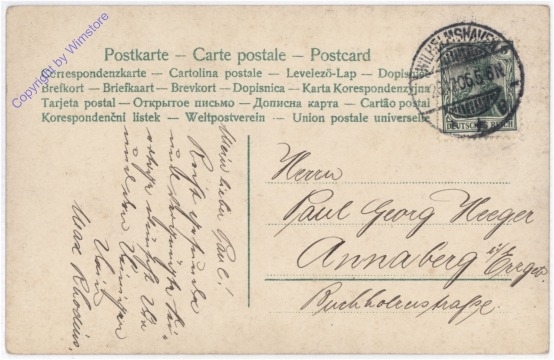 Copyright by Wimstore
Postkarte – Carte postale – Postcard
Korrespondenzkarte – Cartolina postale – Levelező-Lap – Dopisnice
Brefkort – Briefkaart – Brevkort – Dopisnica – Karta Korespondencyjna
Tarjeta postal – Открытое письмо – Дописна карта – Cartão postal
Korespondenční listek – Weltpostverein – Union postale universelle
WILHELMSHAVEN
5-6N
DEUTSCHES REICH
Mein lieber Paul!
Recht gesunde
und vergnügte
wünscht Dir
und den Deinigen
Dein
Max Rhodius.
Herrn
Paul Georg Heeger
Annaberg i/s Erzgeb.
Buchholzerstraße.